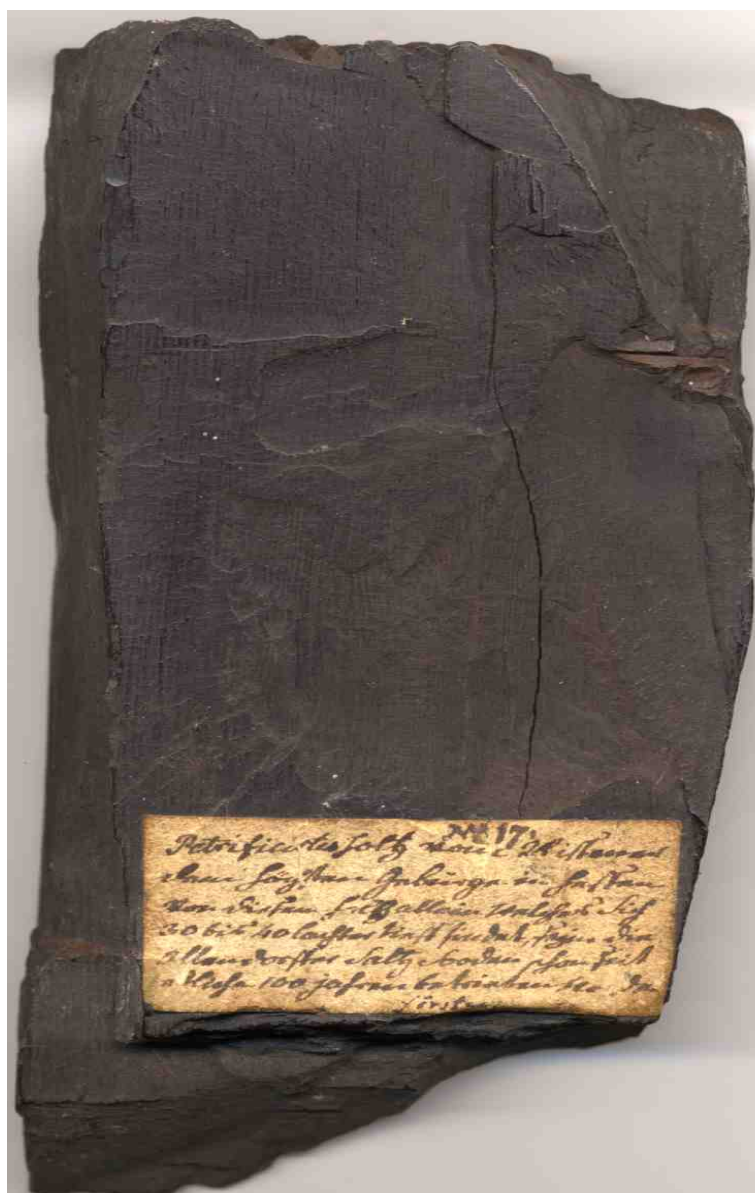 No 17.
Petrificirtes Holtz vom Meisener
dem högsten Gebürge in Hessen
von diesem Holtz allein welches sich
30 bis 40 lachter tieff findet, seyn die
Allendorffer Saltz boden schon seit
etliche 100 jahren betrieben